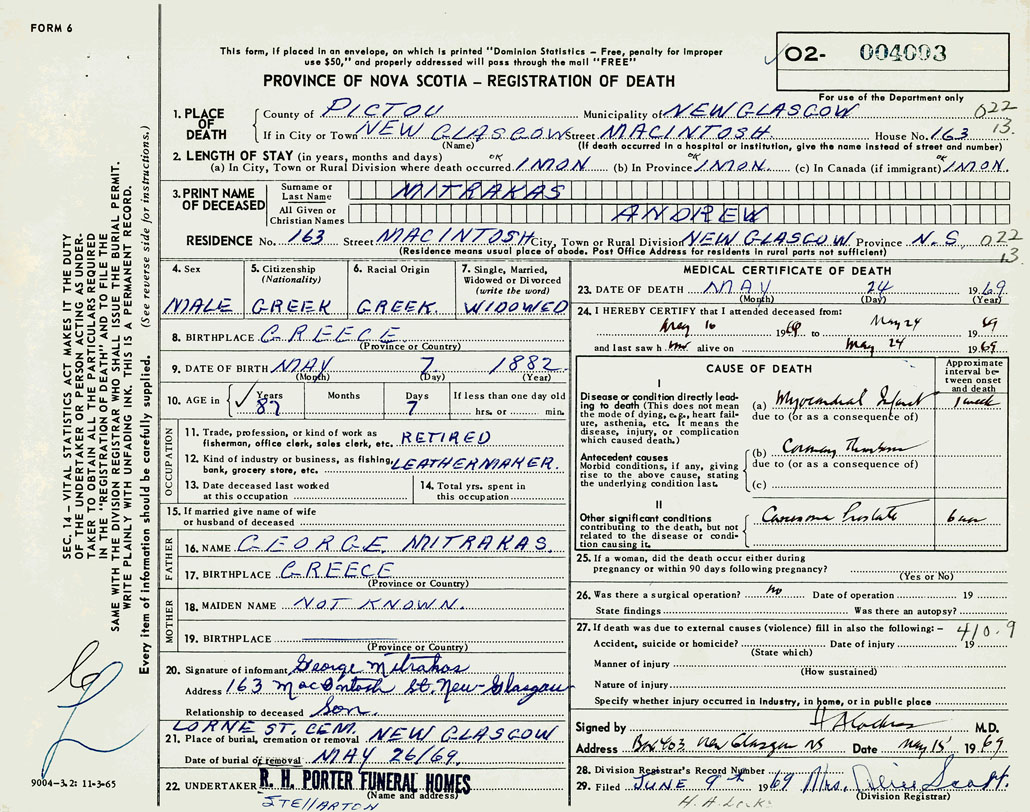 FORM 6
This form, if placed in an envelope, on which is printed "Dominion Statistics – Free, penalty for improper
use $50," and properly addressed will pass through the mail "FREE"
PROVINCE OF NOVA SCOTIA – REGISTRATION OF DEATH
02- 004093
For use of the Department only
1. PLACE OF DEATH County of PICTOU Municipality of NEW GLASGOW 022
If in City or Town NEW GLASGOW Street MACINTOSH House No. 163 13.
(Name) (If death occurred in a hospital or institution, give the name instead of street and number)
2. LENGTH OF STAY (in years, months and days) OK OK OK
(a) In City, Town or Rural Division where death occurred 1 MON. (b) In Province 1 MON. (c) In Canada (if immigrant) 1 MON.
3. PRINT NAME OF DECEASED Surname or Last Name MITRAKAS
All Given or Christian Names ANDREW
RESIDENCE No. 163 Street MACINTOSH City, Town or Rural Division NEW GLASGOW Province N.S. 022
(Residence means usual place of abode. Post Office Address for residents in rural parts not sufficient) 13.
4. Sex MALE
5. Citizenship (Nationality) GREEK
6. Racial Origin GREEK.
7. Single, Married, Widowed or Divorced (write the word) WIDOWED
8. BIRTHPLACE GREECE
(Province or Country)
9. DATE OF BIRTH MAY 7 1882
(Month) (Day) (Year)
10. AGE in Years 87 Months Days 7 If less than one day old
hrs. or min.
OCCUPATION
11. Trade, profession or kind of work as
fisherman, office clerk, sales clerk, etc. RETIRED
12. Kind of industry or business, as fishing,
bank, grocery store, etc. LEATHERMAKER.
13. Date deceased last worked
at this occupation
14. Total yrs. spent in
this occupation
15. If married give name of wife
or husband of deceased
FATHER
16. NAME GEORGE MITRAKAS.
17. BIRTHPLACE GREECE
(Province or Country)
MOTHER
18. MAIDEN NAME NOT KNOWN.
19. BIRTHPLACE
(Province or Country)
20. Signature of informant George Mitrakas
Address 163 MacIntosh St. New Glasgow
Relationship to deceased Son.
LORNE ST. CEM.
21. Place of burial, cremation or removal NEW GLASGOW
Date of burial or removal MAY 26/69.
22. UNDERTAKER R. H. PORTER FUNERAL HOMES
(Name and address)
STELLARTON
MEDICAL CERTIFICATE OF DEATH
23. DATE OF DEATH MAY 24 1969
(Month) (Day) (Year)
24. I HEREBY CERTIFY that I attended deceased from:
May 16 1969 to May 24 1969
and last saw him alive on May 24 1969
CAUSE OF DEATH
Approximate interval between onset and death
I
Disease or condition directly leading
to death (This does not mean
the mode of dying, e.g., heart failure,
asthenia, etc. It means the
disease, injury, or complication
which caused death.)
(a) Myocardial Infarct 1 week
due to (or as a consequence of)
Antecedent causes
Morbid conditions, if any, giving
rise to the above cause, stating
the underlying condition last.
(b) Coronary Thrombosis
due to (or as a consequence of)
(c)
II
Other significant conditions
contributing to the death, but not
related to the disease or condition
causing it.
Carcinoma Prostate
25. If a woman, did the death occur either during
pregnancy or within 90 days following pregnancy?
(Yes or No)
26. Was there a surgical operation? no Date of operation 19
State findings Was there an autopsy?
27. If death was due to external causes (violence) fill in also the following: – 410.9
Accident, suicide or homicide? Date of injury 19
(State which)
Manner of injury
(How sustained)
Nature of injury
Specify whether injury occurred in industry, in home, or in public place
Signed by M.D.
Address Box 403 New Glasgow NS Date May 1969
28. Division Registrar's Record Number
29. Filed JUNE 9th 1969 Mrs. Scott.
(Division Registrar)
SEC. 14 – VITAL STATISTICS ACT MAKES IT THE DUTY
OF THE UNDERTAKER OR PERSON ACTING AS UNDERTAKER
TO OBTAIN ALL THE PARTICULARS REQUIRED
IN THE "REGISTRATION OF DEATH" AND TO FILE THE
SAME WITH THE DIVISION REGISTRAR WHO SHALL ISSUE THE BURIAL PERMIT.
WRITE PLAINLY WITH UNFADING INK. THIS IS A PERMANENT RECORD.
Every item of information should be carefully supplied. (See reverse side for instructions.)
9004-3.2: 11-3-65